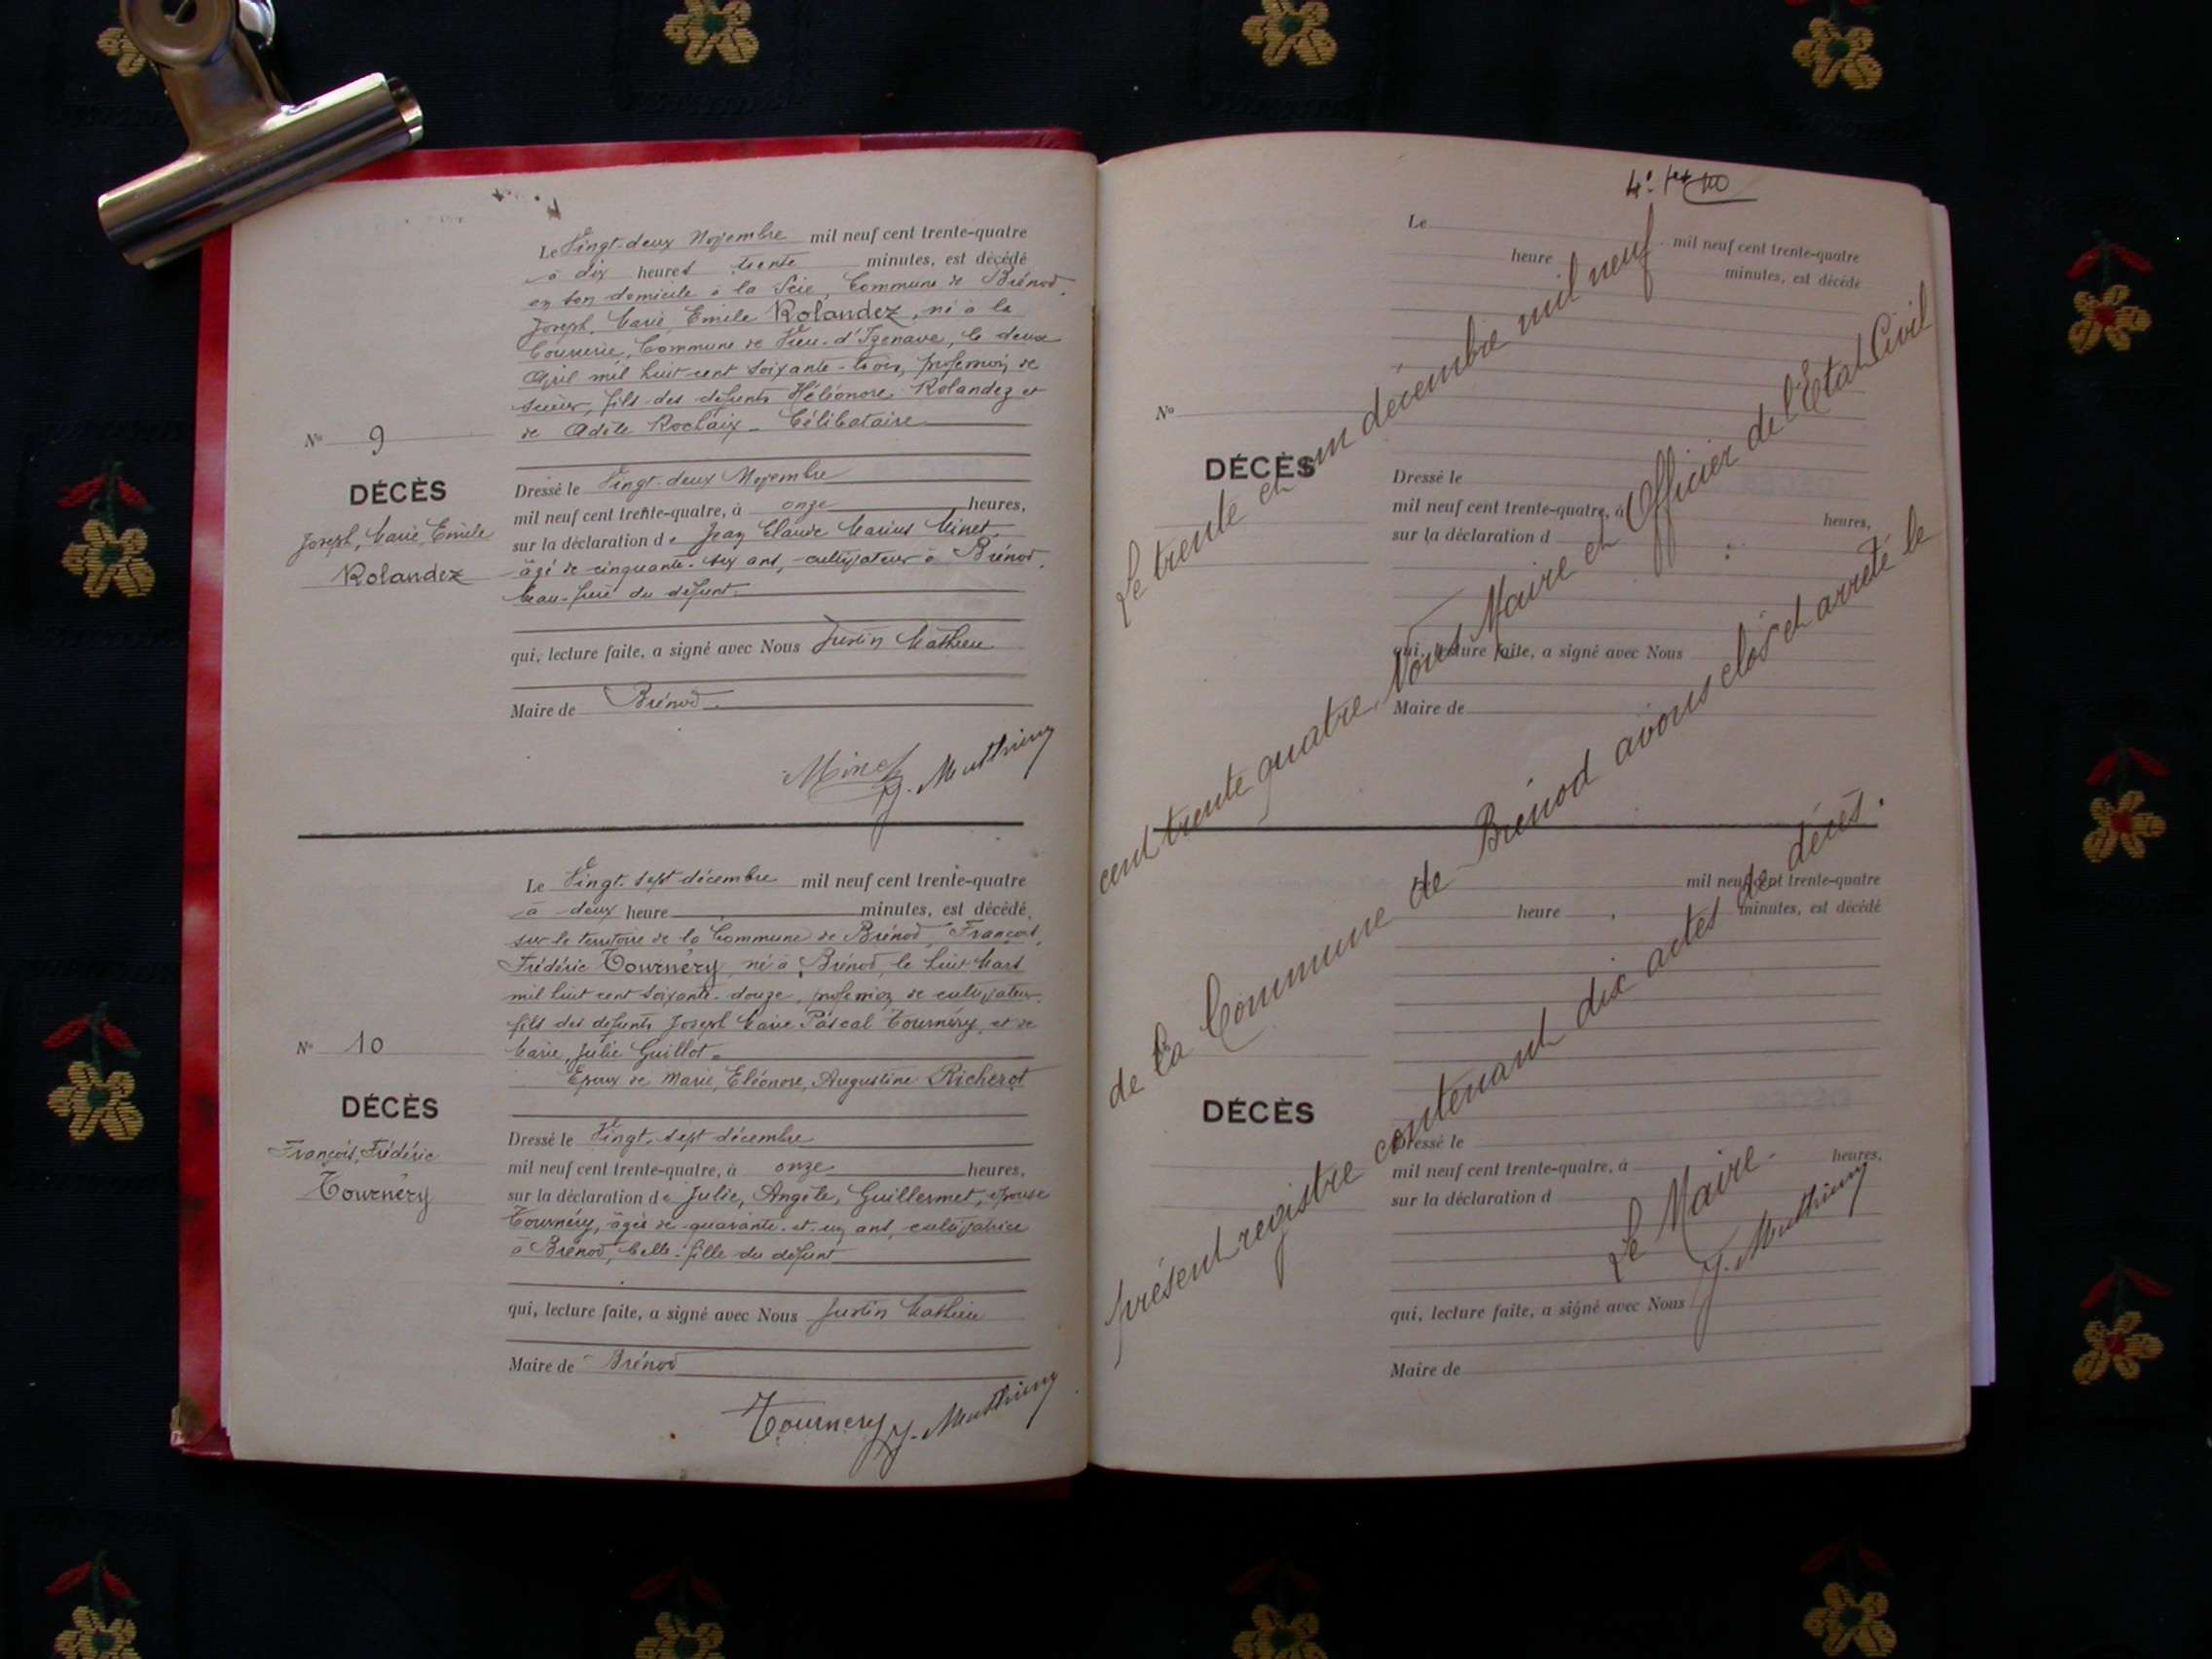 Le Vingt-deux Novembre mil neuf cent trente-quatre
à dix heures trente minutes, est décédé
en son domicile à la Scie, Commune de Brénod,
Joseph, Marie, Emile Rolandez, né à la
Commune de Vieu-d'Izenave, le deux
Avril mil huit cent soixante-trois, profession de
scieur, fils des défunts Héléonore Rolandez et
de Adèle Rochaix - Célibataire
N° 9
DÉCÈS
Joseph, Marie, Emile
Rolandez
Dressé le Vingt-deux Novembre
mil neuf cent trente-quatre, à onze heures,
sur la déclaration de Jean Claude Marius Minet
âgé de cinquante-six ans, cultivateur à Brénod,
beau-frère du défunt.
qui, lecture faite, a signé avec Nous Justin Mathieu
Maire de Brénod.
Minet
J. Mathieu
Le Vingt-sept décembre mil neuf cent trente-quatre
à deux heure minutes, est décédé
sur le territoire de la Commune de Brénod, François,
Frédéric Tournéry, né à Brénod, le huit Mars
mil huit cent soixante-douze, profession de cultivateur,
fils des défunts Joseph Marie Pascal Tournéry, et de
Marie, Julie Guillot.
Epoux de Marie, Eléonore, Augustine Richerot
N° 10
DÉCÈS
François, Frédéric
Tournéry
Dressé le Vingt-sept décembre
mil neuf cent trente-quatre, à onze heures,
sur la déclaration de Julie, Angèle, Guillermet, épouse
Tournéry, âgée de quarante-et-un ans, cultivatrice
à Brénod, belle-fille du défunt
qui, lecture faite, a signé avec Nous Justin Mathieu
Maire de Brénod
Tournery
J. Mathieu
Le mil neuf cent trente-quatre
heure minutes, est décédé
N°
DÉCÈS
Dressé le
mil neuf cent trente-quatre, à heures,
sur la déclaration d
qui, lecture faite, a signé avec Nous
Maire de
Le trente et un décembre mil neuf
cent trente quatre, Nous Maire et Officier de l'Etat Civil
de la Commune de Brénod avons clos et arreté le
présent registre contenant dix actes de décès.
Le Maire
J. Mathieu
Le mil neuf cent trente-quatre
heure minutes, est décédé
DÉCÈS
Dressé le
mil neuf cent trente-quatre, à heures,
sur la déclaration d
qui, lecture faite, a signé avec Nous
Maire de